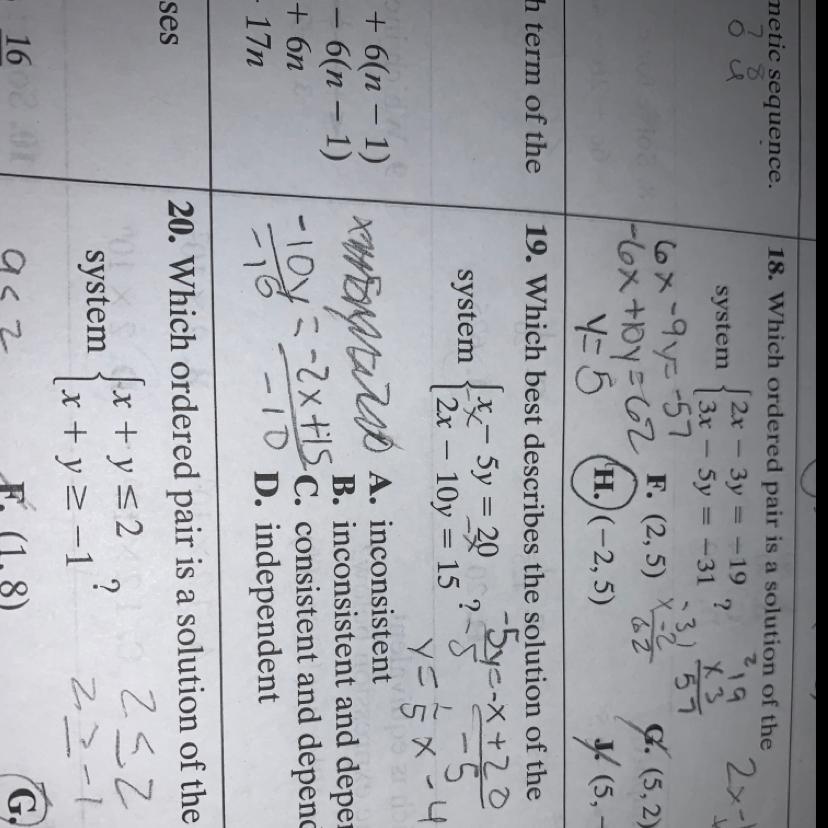 netic sequence.
h term of the
+ 6(n − 1)
− 6(n − 1)
+ 6n
17n
ses
16
18. Which ordered pair is a solution of the
system { 2x − 3y = −19
3x − 5y = −31 ?
F. (2, 5)
G. (5, 2)
H. (−2, 5)
J. (5, −
6x -9y= -57
-6x +10y=62
y=5
19
x 3
57
x -2
62
19. Which best describes the solution of the
system { x − 5y = 20
2x − 10y = 15 ?
-x
-x
-5y=-x+20
-5
y= 1/5 x -4
-10y = -2x+15
-10
-10
A. inconsistent
B. inconsistent and depe
C. consistent and depend
D. independent
20. Which ordered pair is a solution of the
system { x + y ≤ 2
x + y ≥ −1 ?
2≤2
2≥-1
9<2
F. (1, 8)
G.